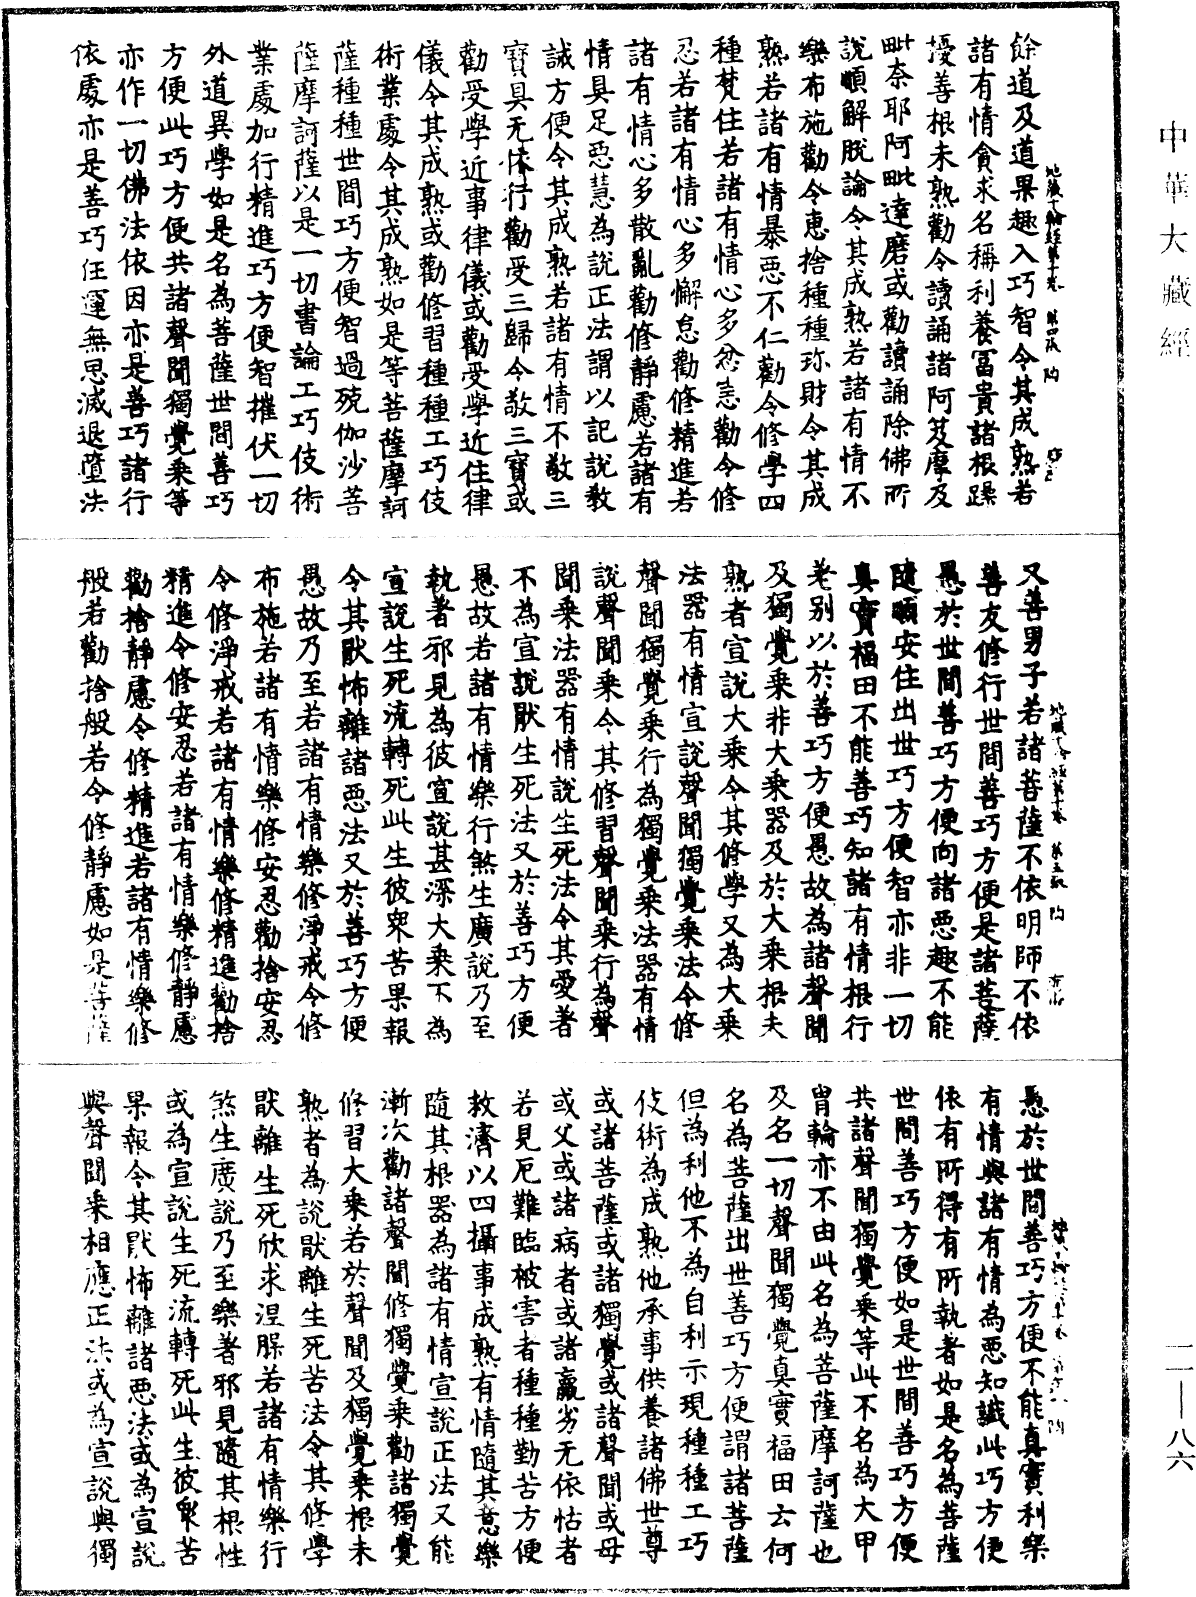 中華大藏經
餘道及道果趣入巧智令其成熟若
諸有情貪求名稱利養冨貴諸根躁
擾善根未熟勸令讀誦諸阿笈摩及
毗奈耶阿毗達磨或勸讀誦除佛所
說順解脫論令其成熟若諸有情不
樂布施勸令惠捨種種珎財令其成
熟若諸有情暴惡不仁勸令修學四
種梵住若諸有情心多忿恚勸令修
忍若諸有情心多懈怠勸修精進若
諸有情心多散亂勸修靜慮若諸有
情具足惡慧為說正法謂以記說教
誡方便令其成熟若諸有情不敬三
寶具无依行勸受三歸令敬三寶或
勸受學近事律儀或勸受學近住律
儀令其成熟或勸修習種種工巧伎
術業處令其成熟如是等菩薩摩訶
薩種種世間巧方便智過殑伽沙菩
薩摩訶薩以是一切書論工巧伎術
業處加行精進巧方便智摧伏一切
外道異學如是名為菩薩世間善巧
方便此巧方便共諸聲聞獨覺乘等
亦作一切佛法依因亦是善巧諸行
依處亦是善巧任運無思滅退墮法
地藏十輪經第十卷 第四張 陶
又善男子若諸菩薩不依明師不依
善友修行世間善巧方便是諸菩薩
愚於世間善巧方便向諸惡趣不能
隨順安住出世巧方便智亦非一切
真實福田不能善巧知諸有情根行
差別以於善巧方便愚故為諸聲聞
及獨覺乘非大乘器及於大乘根未
熟者宣說大乘令其修學又為大乘
法器有情宣說聲聞獨覺乘法令修
聲聞獨覺乘行為獨覺乘法器有情
說聲聞乘令其修習聲聞乘行為聲
聞乘法器有情說生死法令其愛著
不為宣說猒生死法又於善巧方便
愚故若諸有情樂行煞生廣說乃至
執著邪見為彼宣說甚深大乘不為
宣說生死流轉死此生彼眾苦果報
令其猒怖離諸惡法又於善巧方便
愚故乃至若諸有情樂修淨戒令修
布施若諸有情樂修安忍勸捨安忍
令修淨戒若諸有情樂修精進勸捨
精進令修安忍若諸有情樂修靜慮
勸捨靜慮令修精進若諸有情樂修
般若勸捨般若令修靜慮如是菩薩
地藏十輪經第十卷 第五張 陶
愚於世間善巧方便不能真實利樂
有情與諸有情為惡知識此巧方便
依有所得有所執著如是名為菩薩
世間善巧方便如是世間善巧方便
共諸聲聞獨覺乘等此不名為大甲
冑輪亦不由此名為菩薩摩訶薩也
及名一切聲聞獨覺真實福田云何
名為菩薩出世善巧方便謂諸菩薩
但為利他不為自利示現種種工巧
伎術為成熟他承事供養諸佛世尊
或諸菩薩或諸獨覺或諸聲聞或母
或父或諸病者或諸羸劣无依怙者
若見厄難臨被害者種種勤苦方便
救濟以四攝事成熟有情隨其意樂
隨其根器為諸有情宣說正法又能
漸次勸諸聲聞修獨覺乘勸諸獨覺
修習大乘若於聲聞及獨覺乘根未
熟者為說猒離生死苦法令其修學
猒離生死欣求涅槃若諸有情樂行
煞生廣說乃至樂著邪見隨其根性
或為宣說生死流轉死此生彼眾苦
果報令其猒怖離諸惡法或為宣說
與聲聞乘相應正法或為宣說與獨
一一—八六